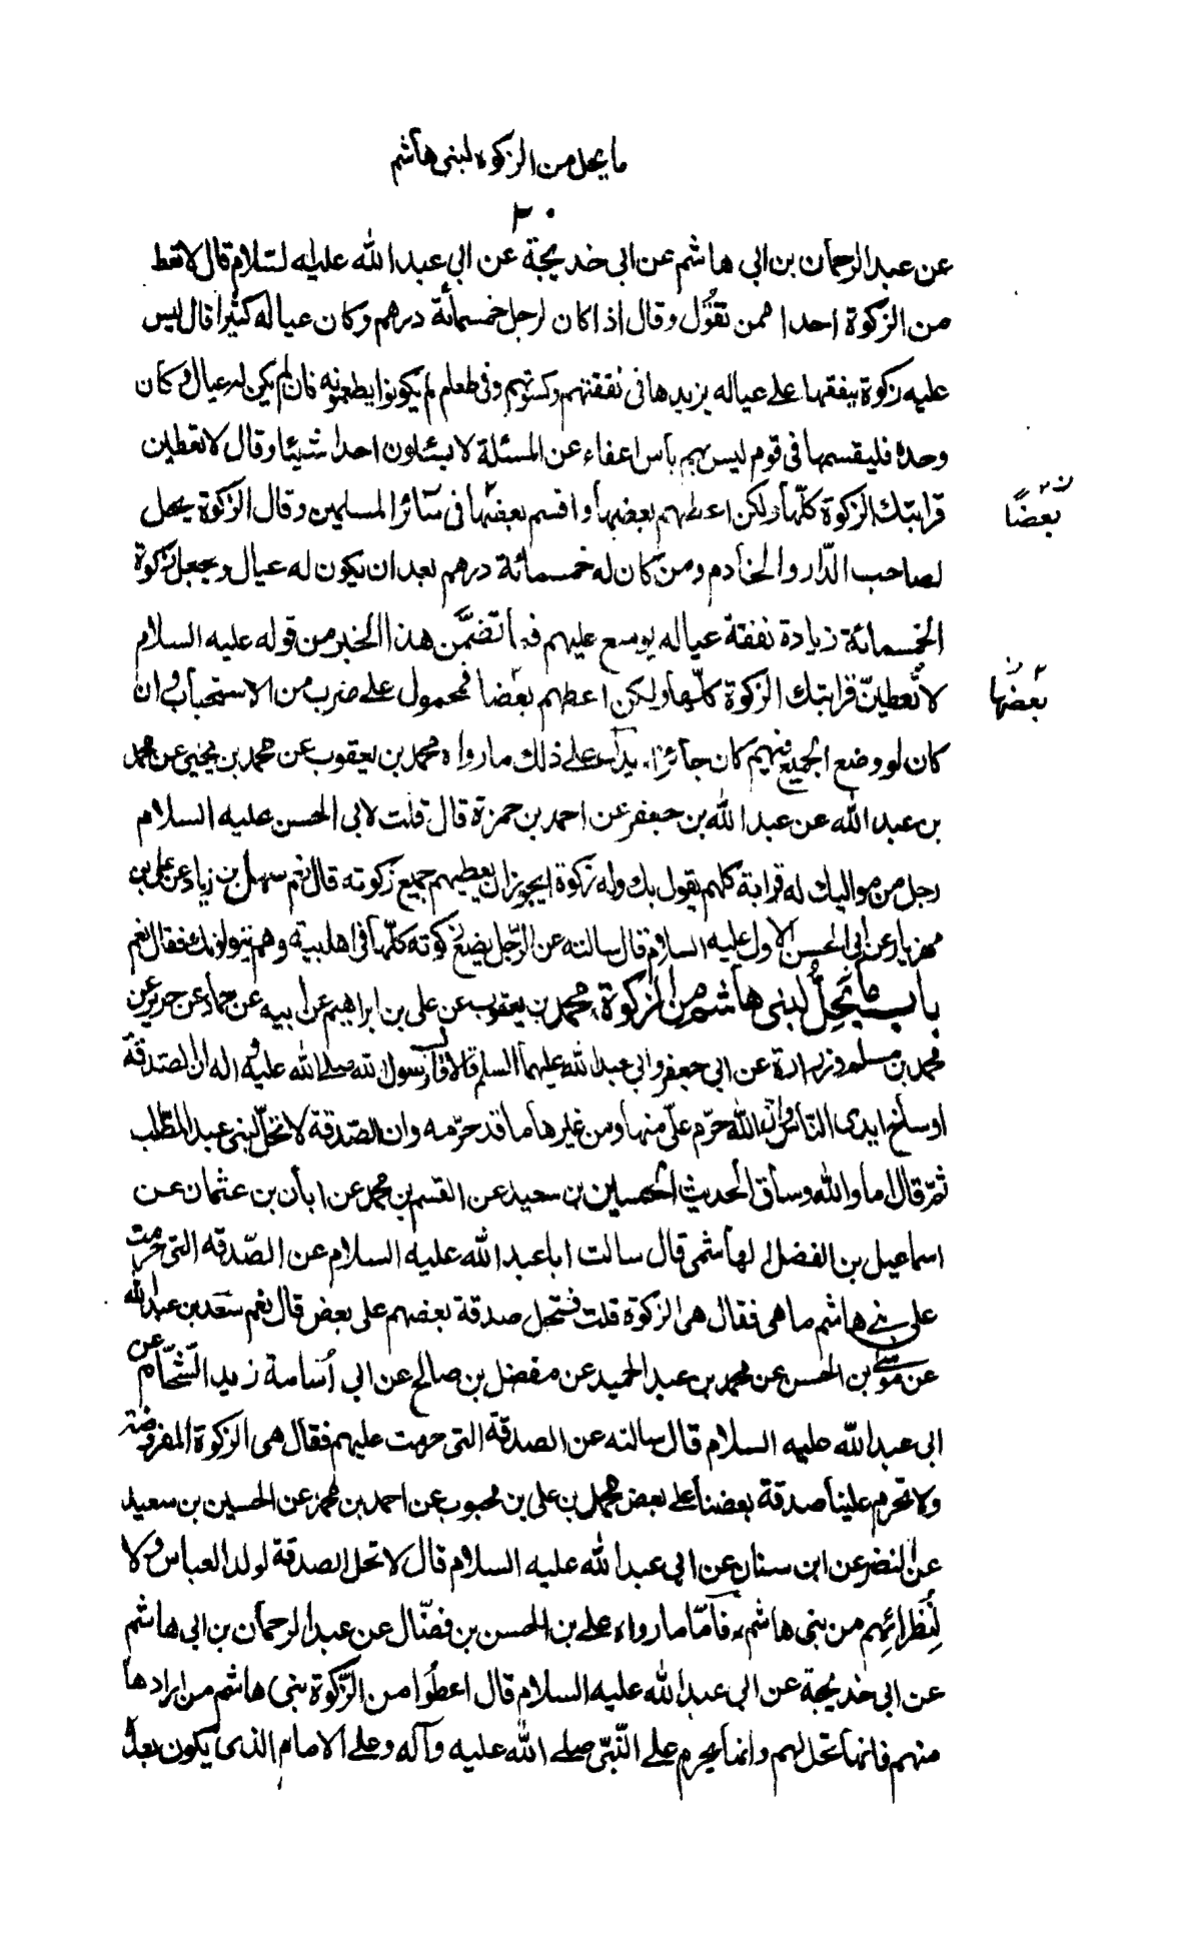 ما يحل من الزكوة لبنى هاشم
٣٠
عن عبد الرحمان بن ابى هاشم عن ابى خديجة عن ابى عبد الله عليه لسّلام قال لا تعط
من الزكوة احدا ممن تقول وقال اذا كان لرجل خمسمائة درهم وكان عياله كثيرا قال ليس
عليه زكوة ينفقها على عياله يزيدها فى نفقتهم وكسوتهم وفى طعام لم يكونوا يطعمونه فان لم يكن له عيال وكان
وحده فليقسمها فى قوم ليس بهم بأس اعفاء عن المسئلة لا يسئلون احدا شيئا وقال لا تعطين
قرابتك الزكوة كلّها ولكن اعطهم بعضها واقسم بعضها فى سائر المسلمين وقال الزكوة يحل
بعضًا
لصاحب الدّار والخادم ومن كان له خمسمائة درهم بعد ان يكون له عيال ويجعل زكوة
الخمسمائة زيادة نفقة عياله يوسع عليهم فما تضمّن هذا الخبر من قوله عليه السلام
لا تُعطينّ قرابتك الزكوة كلّها ولكن اعطهم بعضا فمحمول على ضرب من الاستحباب وان
بعضها
كان لو وضع الجميع فيهم كان جائزا، يدل على ذلك ما رواه محمد بن يعقوب عن محمد بن يحيى عن محمد
بن عبد الله عن عبد الله بن جعفر عن احمد بن حمزة قال قلت لابى الحسن عليه السلام
رجل من مواليك له قرابة كلهم يقول بك وله زكوة ايجوز ان يعطيهم جميع زكوته قال نعم سهل بن زياد عن على بن
مهزيار عن ابى الحسن الاول عليه السلام قال سالته عن الرّجل يضع زكوته كلّها فى اهل بيته وهم يتولونك فقال نعم
باب ما تحلّ لبنى هاشم من الزكوة، محمد بن يعقوب عن على بن ابراهيم عن أبيه عن حماد عن حريز عن
محمد بن مسلم وزرارة عن ابى جعفر وابى عبد الله عليهما السلم قالا قال رسول الله صلى الله عليه واله ان الصدقة
اوساخ ايدى النّاس وان الله حرّم علىّ منها ومن غيرها ما قد حرّمه وان الصّدقة لا تحلّ لبنى عبد المطّلب
ثمّ قال اما والله وساق الحديث الحسين بن سعيد عن القسم بن محمد عن ابان بن عثمان عن
اسماعيل بن الفضل الهاشمى قال سالت ابا عبد الله عليه السلام عن الصّدقه التى حرمت
على بنى هاشم ما هى فقال هى الزكوة قلت فتحل صدقة بعضهم على بعض قال نعم سعد بن عبد الله
عن موسى بن الحسن عن محمد بن عبد الحميد عن مفضل بن صالح عن ابى أسامة زيد الشّحّام عن
ابى عبد الله عليه السلام قال سالته عن الصدقة التى حرمت عليهم فقال هى الزكوة المفروضة
ولا تحرم علينا صدقة بعضنا على بعض محمد بن على بن محبوب عن احمد بن محمد عن الحسين بن سعيد
عن النضر عن ابن سنان عن ابى عبد الله عليه السلام قال لا تحل الصدقة لولد العباس ولا
لنُظرائهم من بنى هاشم، فامّا ما رواه على بن الحسن بن فضّال عن عبد الرحمان بن ابى هاشم
عن ابى خديجة عن ابى عبد الله عليه السلام قال اعطُوا من الزّكوة بنى هاشم من ارادها
منهم فانما تحل لهم وانما يحرم على النّبىّ صلى الله عليه وآله وعلى الامام الذى يكون بعده